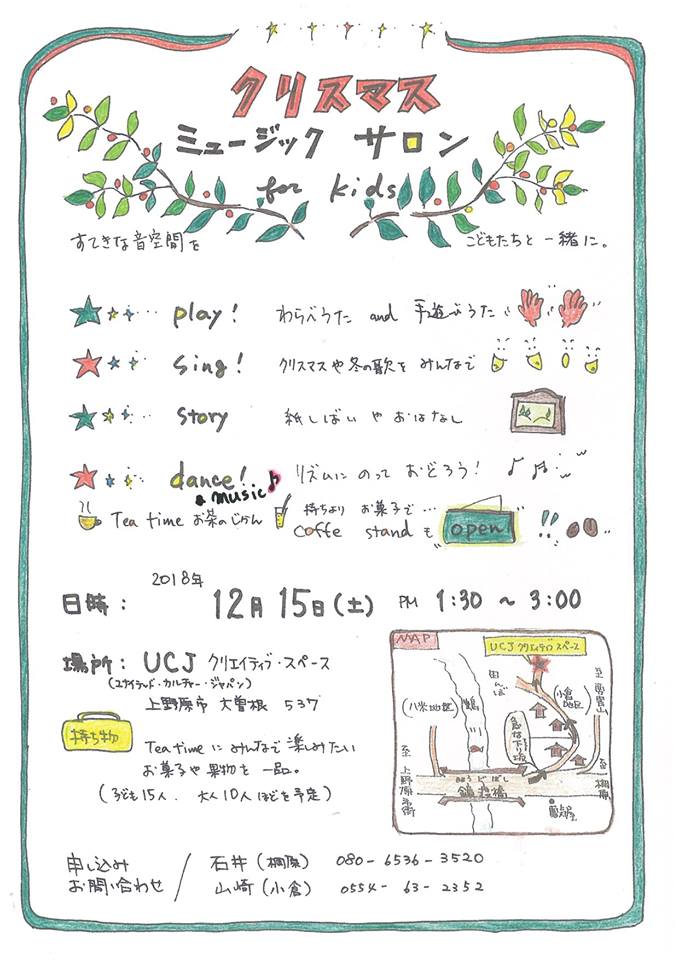 クリスマス
ミュージック サロン
for kids
すてきな音空間を こどもたちと一緒に。
play! わらべうた and 手遊びうた
sing! クリスマスや冬の歌を みんなで
story 紙しばい や おはなし
dance! リズムに のって おどろう!
& music
Tea time お茶のじかん 持ちより お菓子で…
coffe stand も open !!
2018年
日時: 12月 15日(土) PM 1:30 ~ 3:00
場所: UCJ クリエイティブ・スペース
(ユナイテッド・カルチャー・ジャパン)
上野原市 大曽根 537
持ち物
Tea time に みんなで 楽しみたい
お菓子や 果物を 一品。
(子ども15人、大人10人ほどを予定)
MAP
UCJ クリエイティブスペース
田んぼ
(八米地区)
(小倉地区)
急な下り坂
至 上野原市街
至 棡原
申し込み
お問い合わせ
石井(棡原) 080-6536-3520
山崎(小倉) 0554-63-2352